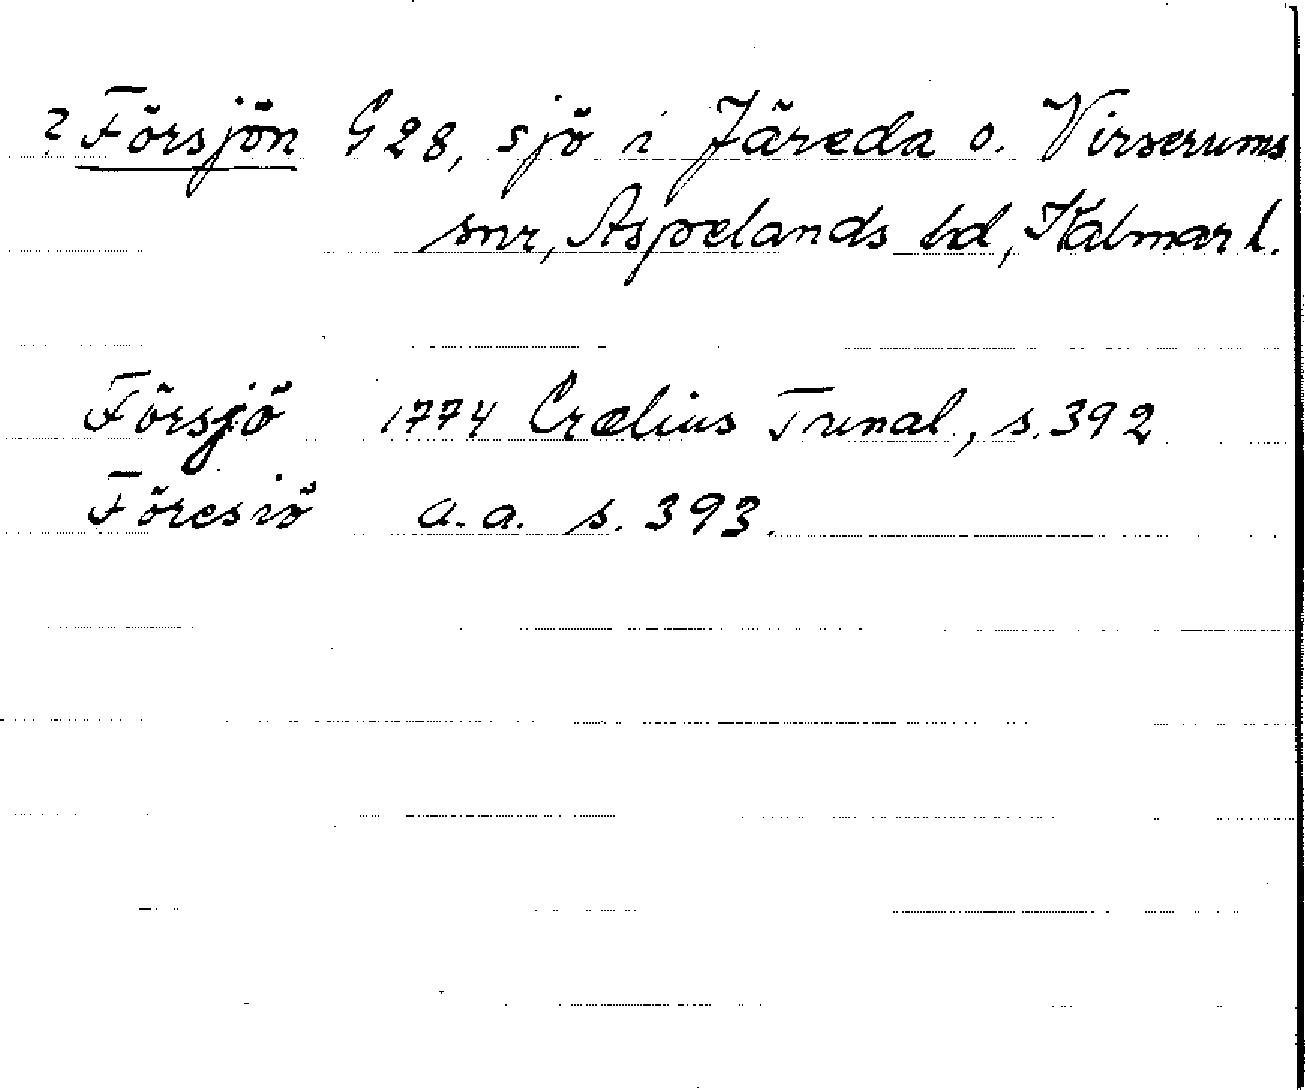 ? Försjön G 28, sjö i Järeda o. Virserums
snr, Aspelands hd, Kalmar l.
Försjö 1774 Crælius Tunal., s. 392
Föresiö a.a. s. 393.